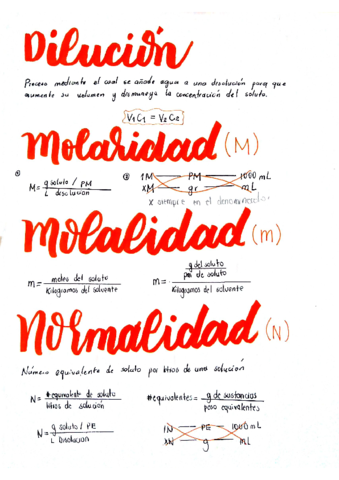 Dilución
Proceso mediante el cual se añade agua a una disolución para que
aumente su volumen y disminuya la concentración del soluto.
V1C1 = V2C2
Molaridad (M)
M= g soluto / PM
L disolución
1M PM 1000 mL
XM gr mL
X siempre en el denominador
Molalidad (m)
m= moles del soluto
Kilogramos del solvente
m= g del soluto
pm de soluto
Kilogramos del solvente
Normalidad (N)
Número equivalente de soluto por litros de una solución
N= #equivalent de soluto
litros de solución
#equivalentes = g de sustancias
peso equivalentes
N= g soluto / PE
L Disolución
1N PE 1000 mL
XN g mL